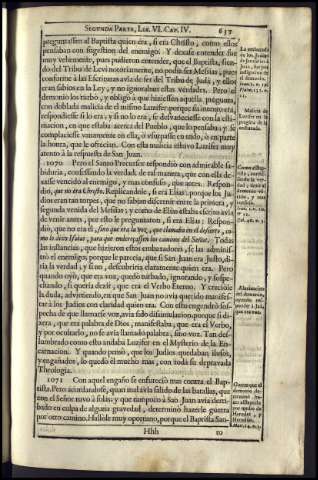 SEGUNDA PARTE, LIB. VI. CAP. IV. 637
preguntassen al Baptista quien era, si era Christo, como ellos
pensaban con sugestion del enemigo. Y deseaba entender
muy vehemente, pues pudieron entender, que el Baptista, sien-
do del Tribu de Levi notoriamente, no podia ser Messias, pues
conforme à las Escrituras avia de ser del Tribu de Judà, y ellos
eran sabios en la Ley, y no ignoraban estas verdades. Pero el
demonio los turbò, y obligò à que hiziessen aquella pregunta,
con doblada malicia de el mismo Luzifer porque su intento era,
respondiesse si lo era; y si no lo era, se desvaneciesse con la esti-
macion, en que estaba àcerca del Pueblo, que lo pensaba; y se
complaciesse vanamente en ella, ò usurpasse en todo, ò en parte
la honra, que le ofrecian. Con esta malicia estuvo Luzifer muy
atento à la respuesta de San Juan.
1070 Pero el Santo Precursor respondiò con admirable sa-
biduria, confessando la verdad de tal manera, que con ella de-
xasse vencido al enemigo, y mas confuso, que antes. Respon-
diò, que no era Christo. Replicaronle, si era Elias: porque los Ju-
dios eran tan torpes, que no sabian discernir entre la primera, y
segunda venida del Messias; y como de Elias estaba escrito avia
de venir antes, por esto le preguntaron, si era Elias: Respon-
diò, que no era èl, sino que era la voz, que clamaba en el desierto, co-
mo lo dixo Isaias, para que enderezassen los caminos del Señor. Todas
las instancias, que hizieron estos embaxadores, se las adminis-
trò el enemigo; porque le parecia, que si San Juan era Justo, di-
ria la verdad; y si no, descubriria claramente quien era. Pero
quando oyò, que era voz, quedò turbado, ignorando, y sospe-
chando, si queria dezir, que era el Verbo Eterno. Y creciòle
la duda, advirtiendo, en que San Juan no avia querido manifes-
tar à los Judios con claridad quien era. Con esto engendrò sos-
pecha de que llamarse voz, avia sido disimulacion; porque si di-
xera, que era palabra de Dios, manifestaba, que era el Verbo,
y por ocultarlo, no se avia llamado palabra, sino voz. Tan des-
lumbrado como esto andaba Luzifer en el Mysterio de la En-
carnacion. Y quando pensò, que los Judios quedaban ilusos,
y engañados, lo quedò èl mucho mas, con toda su depravada
Theologia.
1071 Con aquel engaño se enfureciò mas contra el Bap-
tista. Pero acordandose, quan mal avia salido de las batallas, que
con el Señor tuvo à solas; y que tampoco à San Juan avia derri-
bado en culpa de alguna gravedad, determinò hazerle guerra
por otro camino. Hallòle muy oportuno, porque el Baptista San-
Hhh to
Malicia de
Luzifer en la
pregunta de
la embaxada.